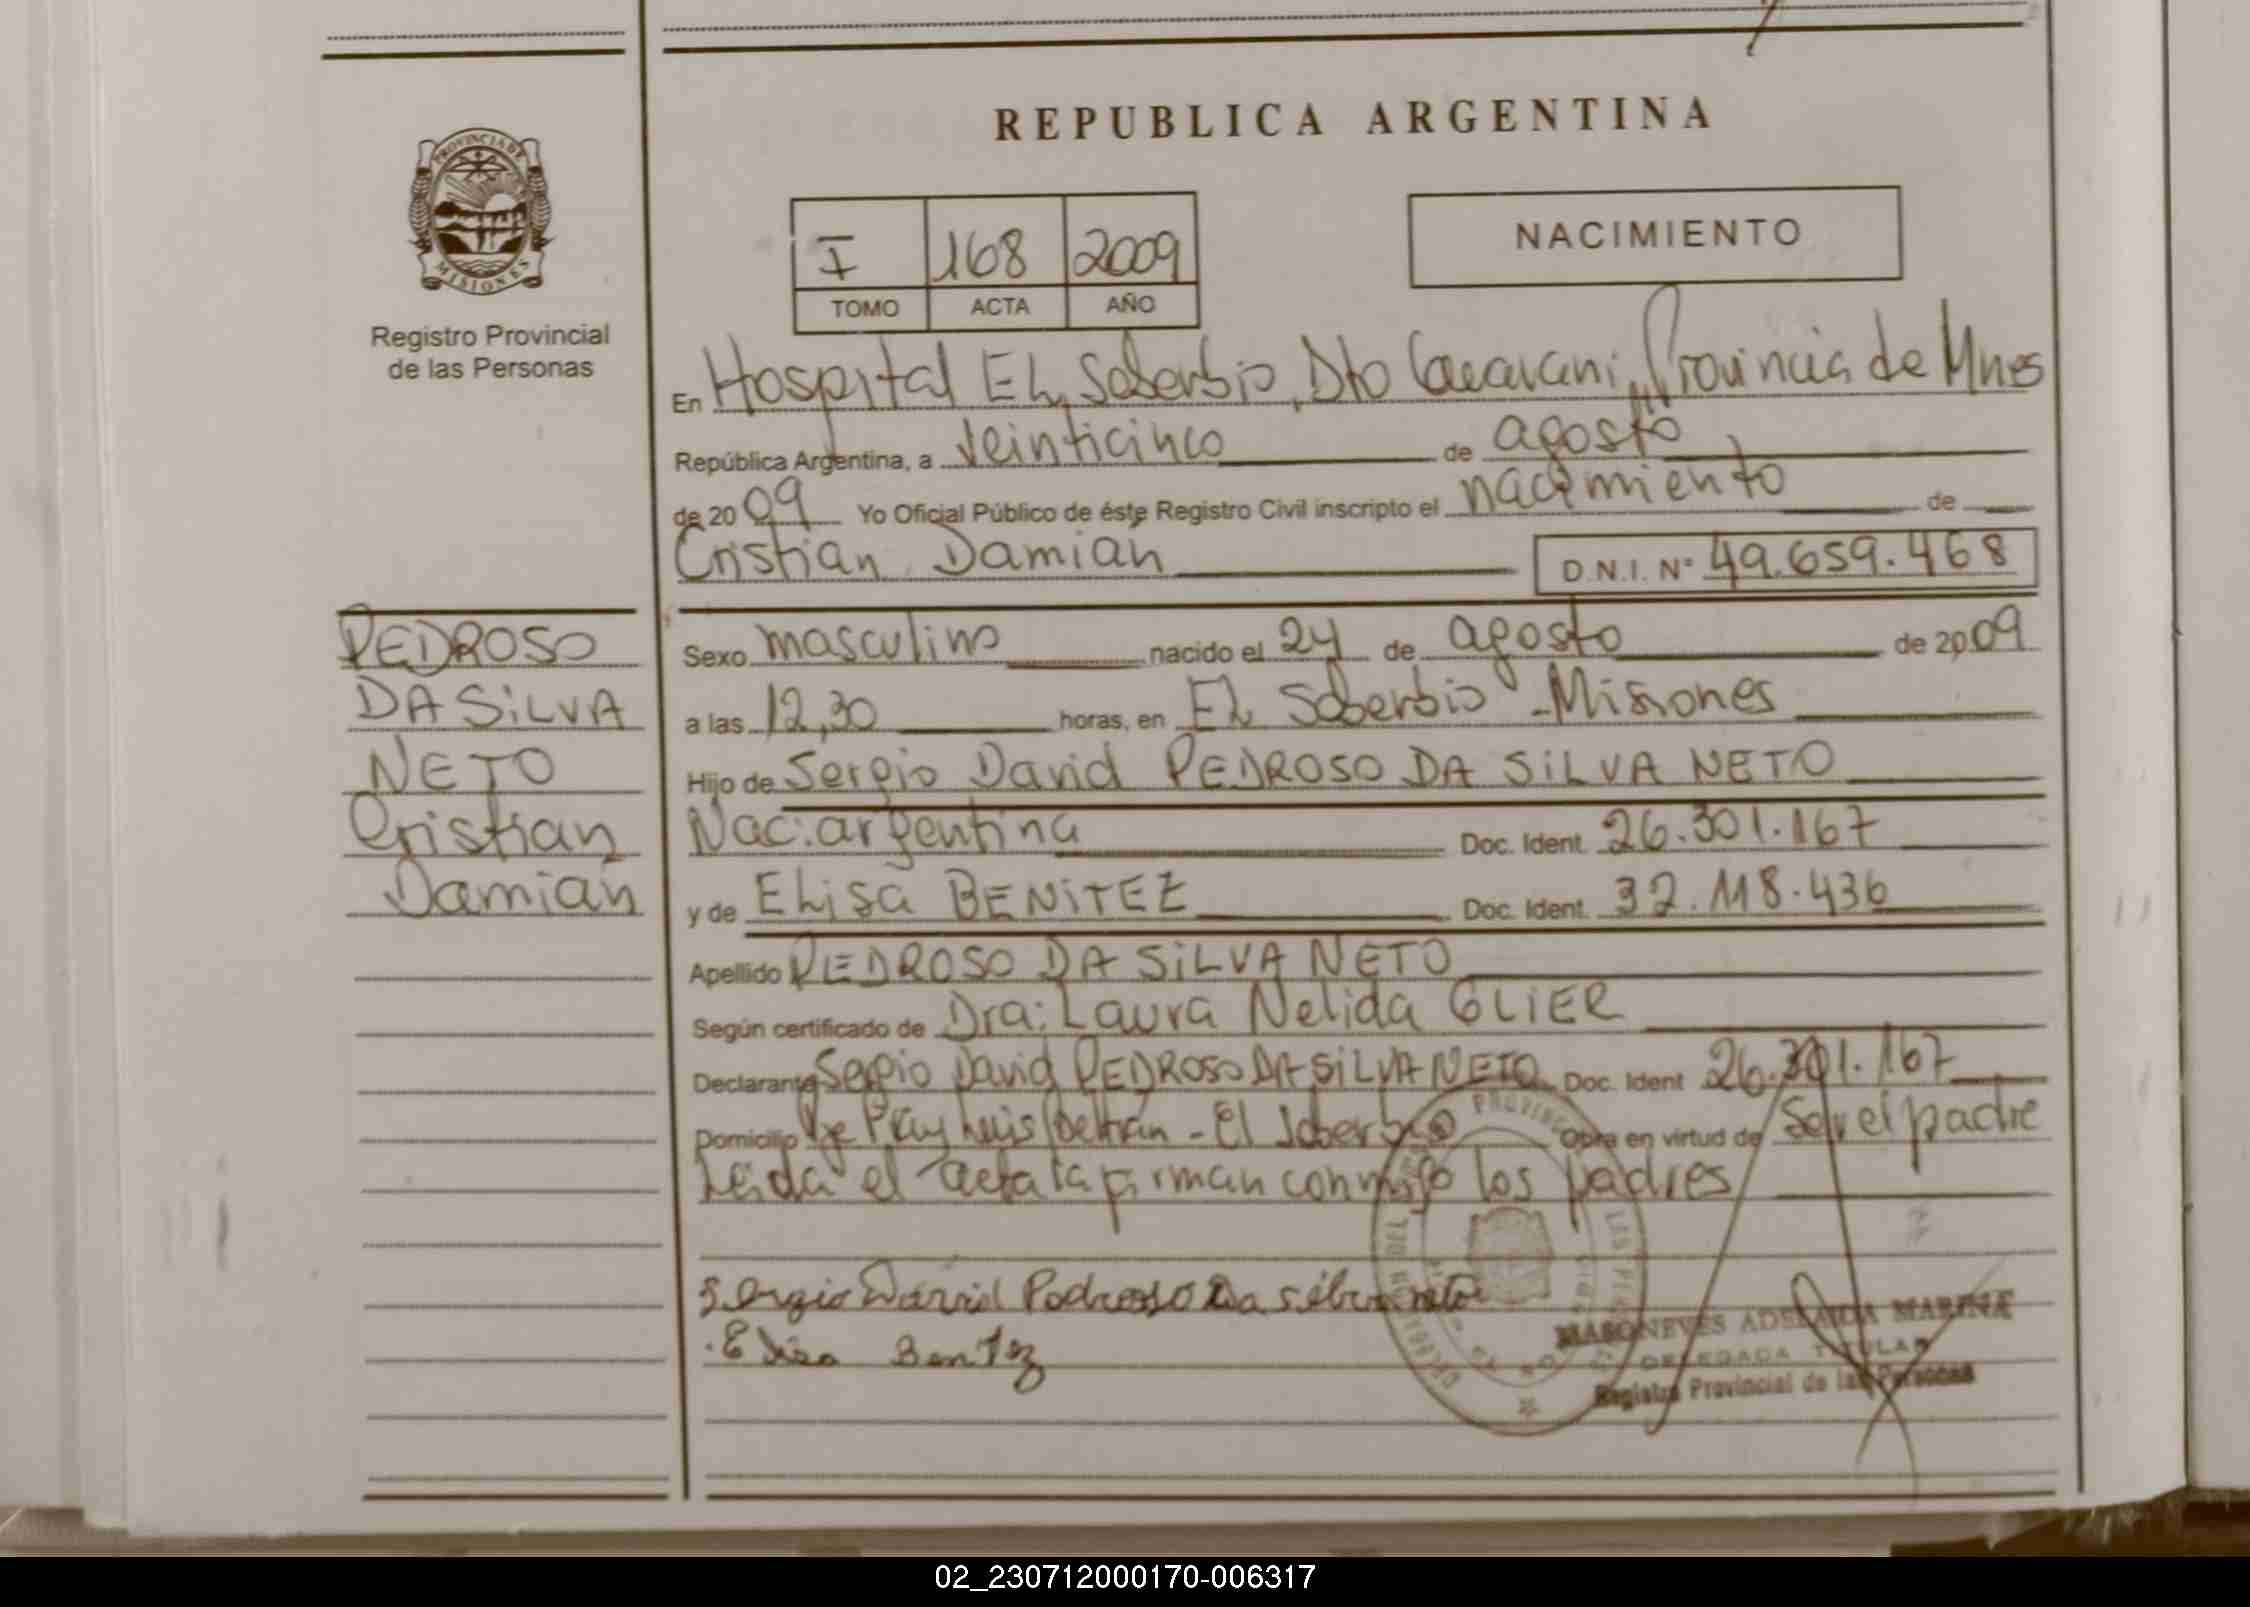 REPUBLICA ARGENTINA
PROVINCIA DE
MISIONES
Registro Provincial
de las Personas
I 168 2009
TOMO ACTA AÑO
NACIMIENTO
En Hospital EL Soberbio, Dto Guarani, Provincia de Mnes
República Argentina, a veinticinco de agosto
de 2009 Yo Oficial Público de éste Registro Civil inscripto el nacimiento de
Cristian Damián D.N.I. Nº 49.659.468
PEDROSO
DA SiLVA
NETO
Cristian
Damián
Sexo masculino nacido el 24 de agosto de 2009
a las 12,30 horas, en EL Soberbio - Misiones
Hijo de Sergio David PEDROSO DA SiLVA NETO
Nac: argentina Doc. Ident. 26.301.167
y de ELisa BENiTEZ Doc. Ident. 32.118.436
Apellido PEDROSO DA SiLVA NETO
Según certificado de Dra: Laura Nelida GLiER
Declarante Sergio David PEDROSO DA SiLVA NETO Doc. Ident 26.301.167
Domicilio Fray Luis Beltrán - El Soberbio Obra en virtud de Ser el padre
Leida el acta la firman conmigo los padres
Sergio David Pedroso Da silva neto
Elisa Bentez
ADELAIDA MARINA
DELEGADA TITULAR
Registro Provincial de las Personas
02_230712000170-006317